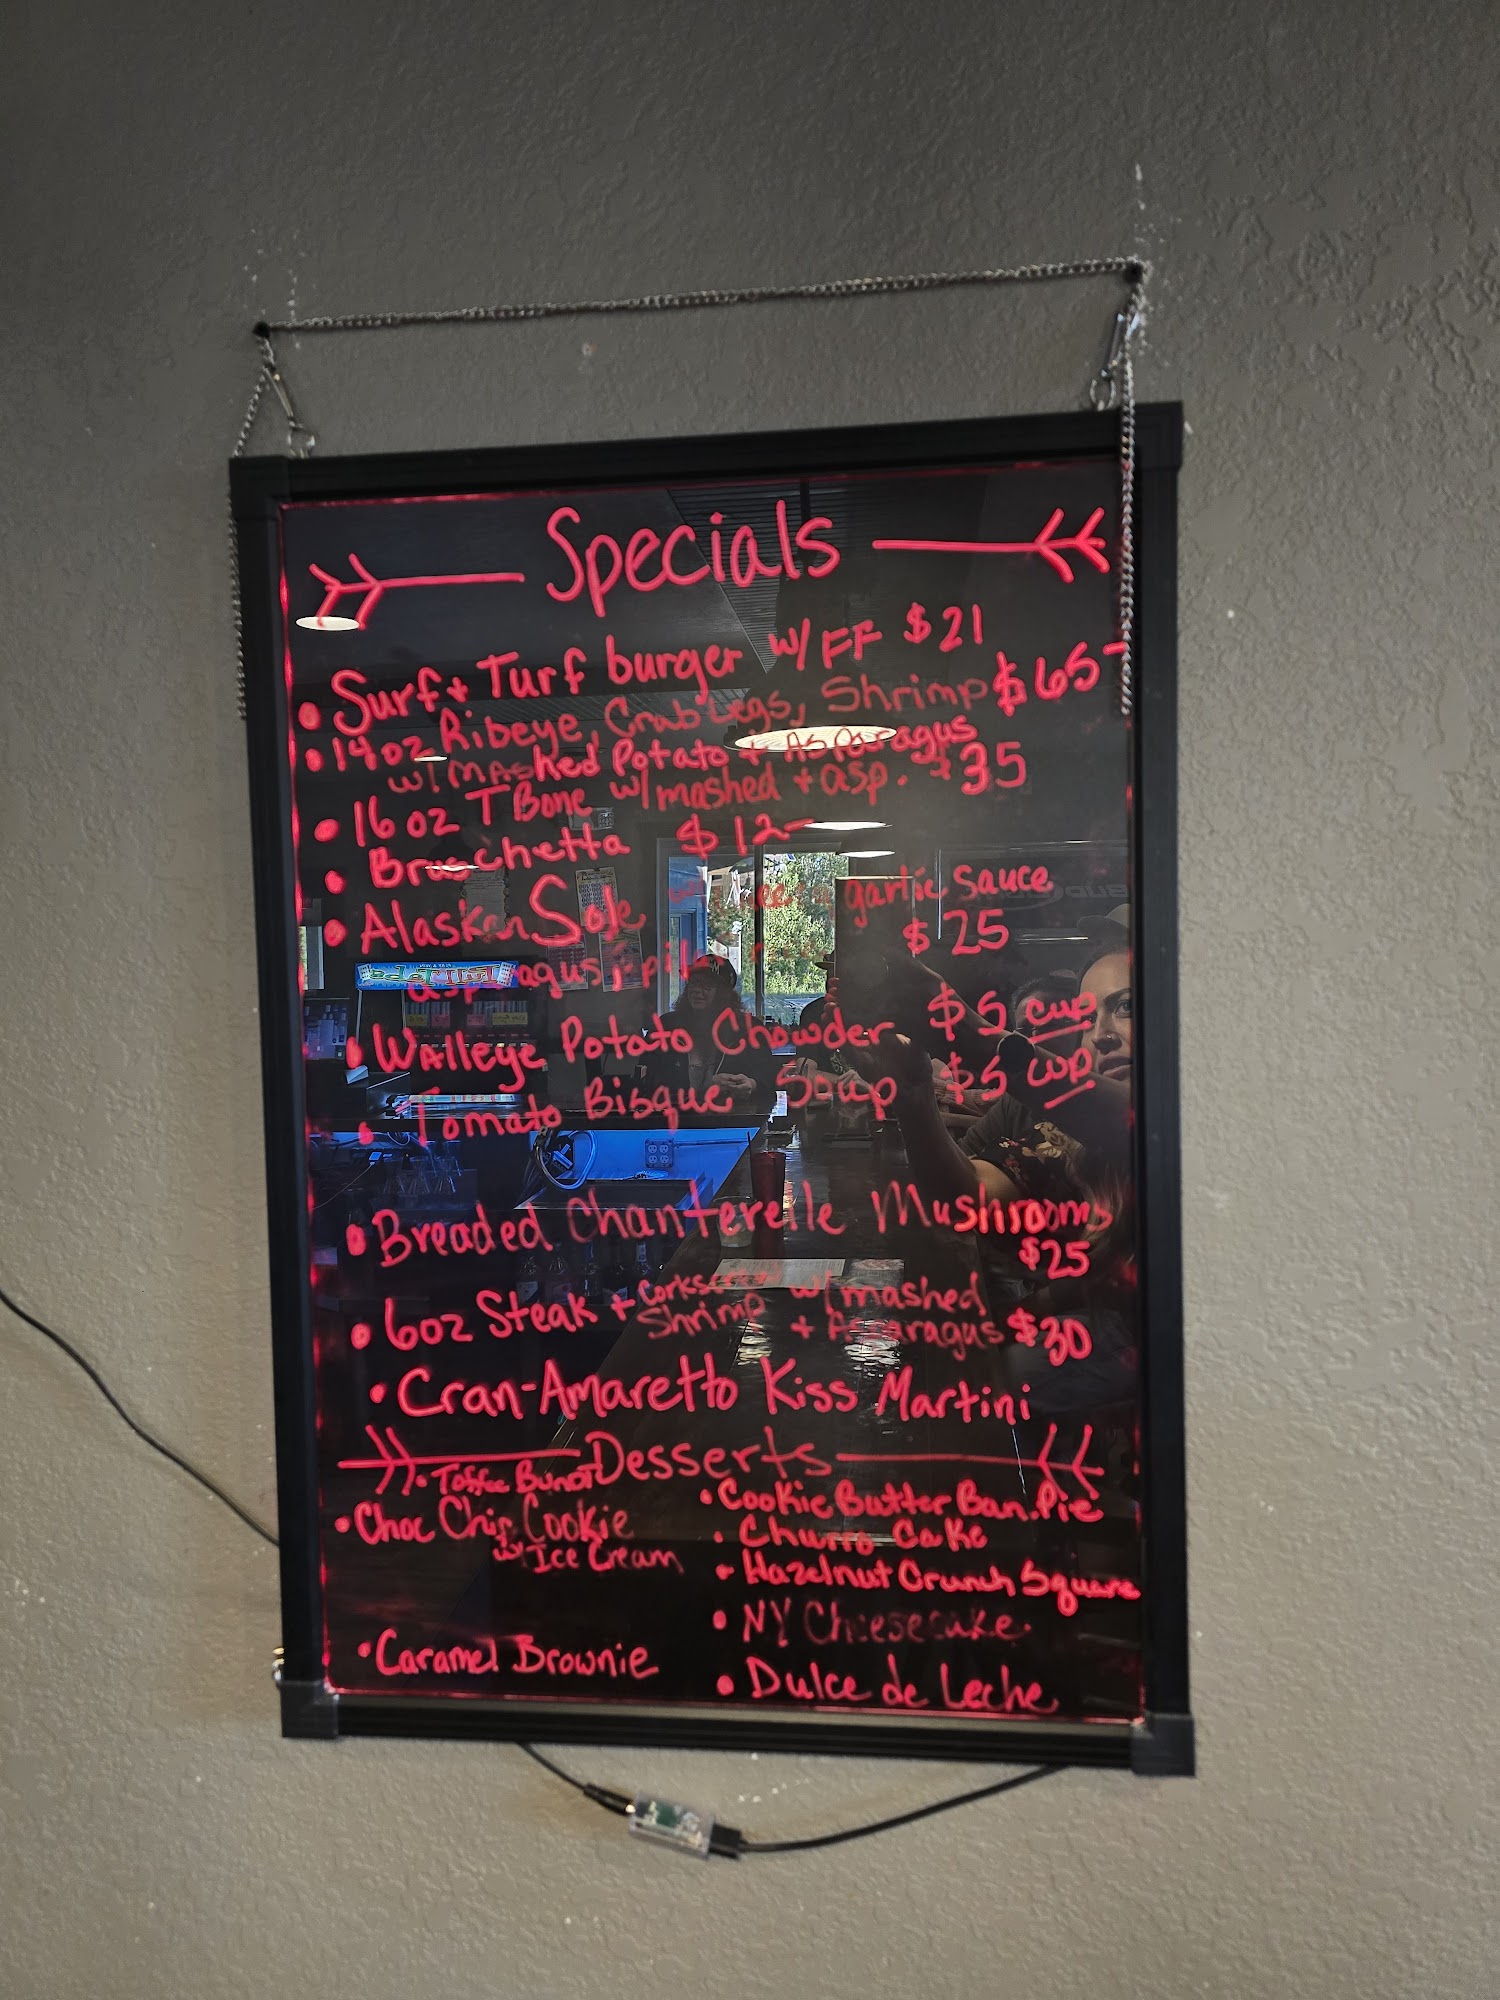 Specials
• Surf + Turf burger w/ FF $21
• 14 oz Ribeye, Crab Legs, Shrimp $65-
w/ Mashed Potato + Asparagus
• 16 oz T Bone w/ mashed + asp. $35
• Bruschetta $12-
• Alaskan Sole garlic sauce
asparagus, $25
• Walleye Potato Chowder $5 cup
• Tomato Bisque Soup $5 cup
• Breaded Chanterelle Mushrooms
$25
• 6oz Steak + Corkscrew w/ mashed
Shrimp + Asparagus $30
• Cran-Amaretto Kiss Martini
Desserts
• Toffee Bundt
• Choc Chip Cookie
w/ Ice Cream
• Caramel Brownie
• Cookie Butter Ban. Pie
• Churro Cake
• Hazelnut Crunch Square
• NY Cheesecake
• Dulce de Leche